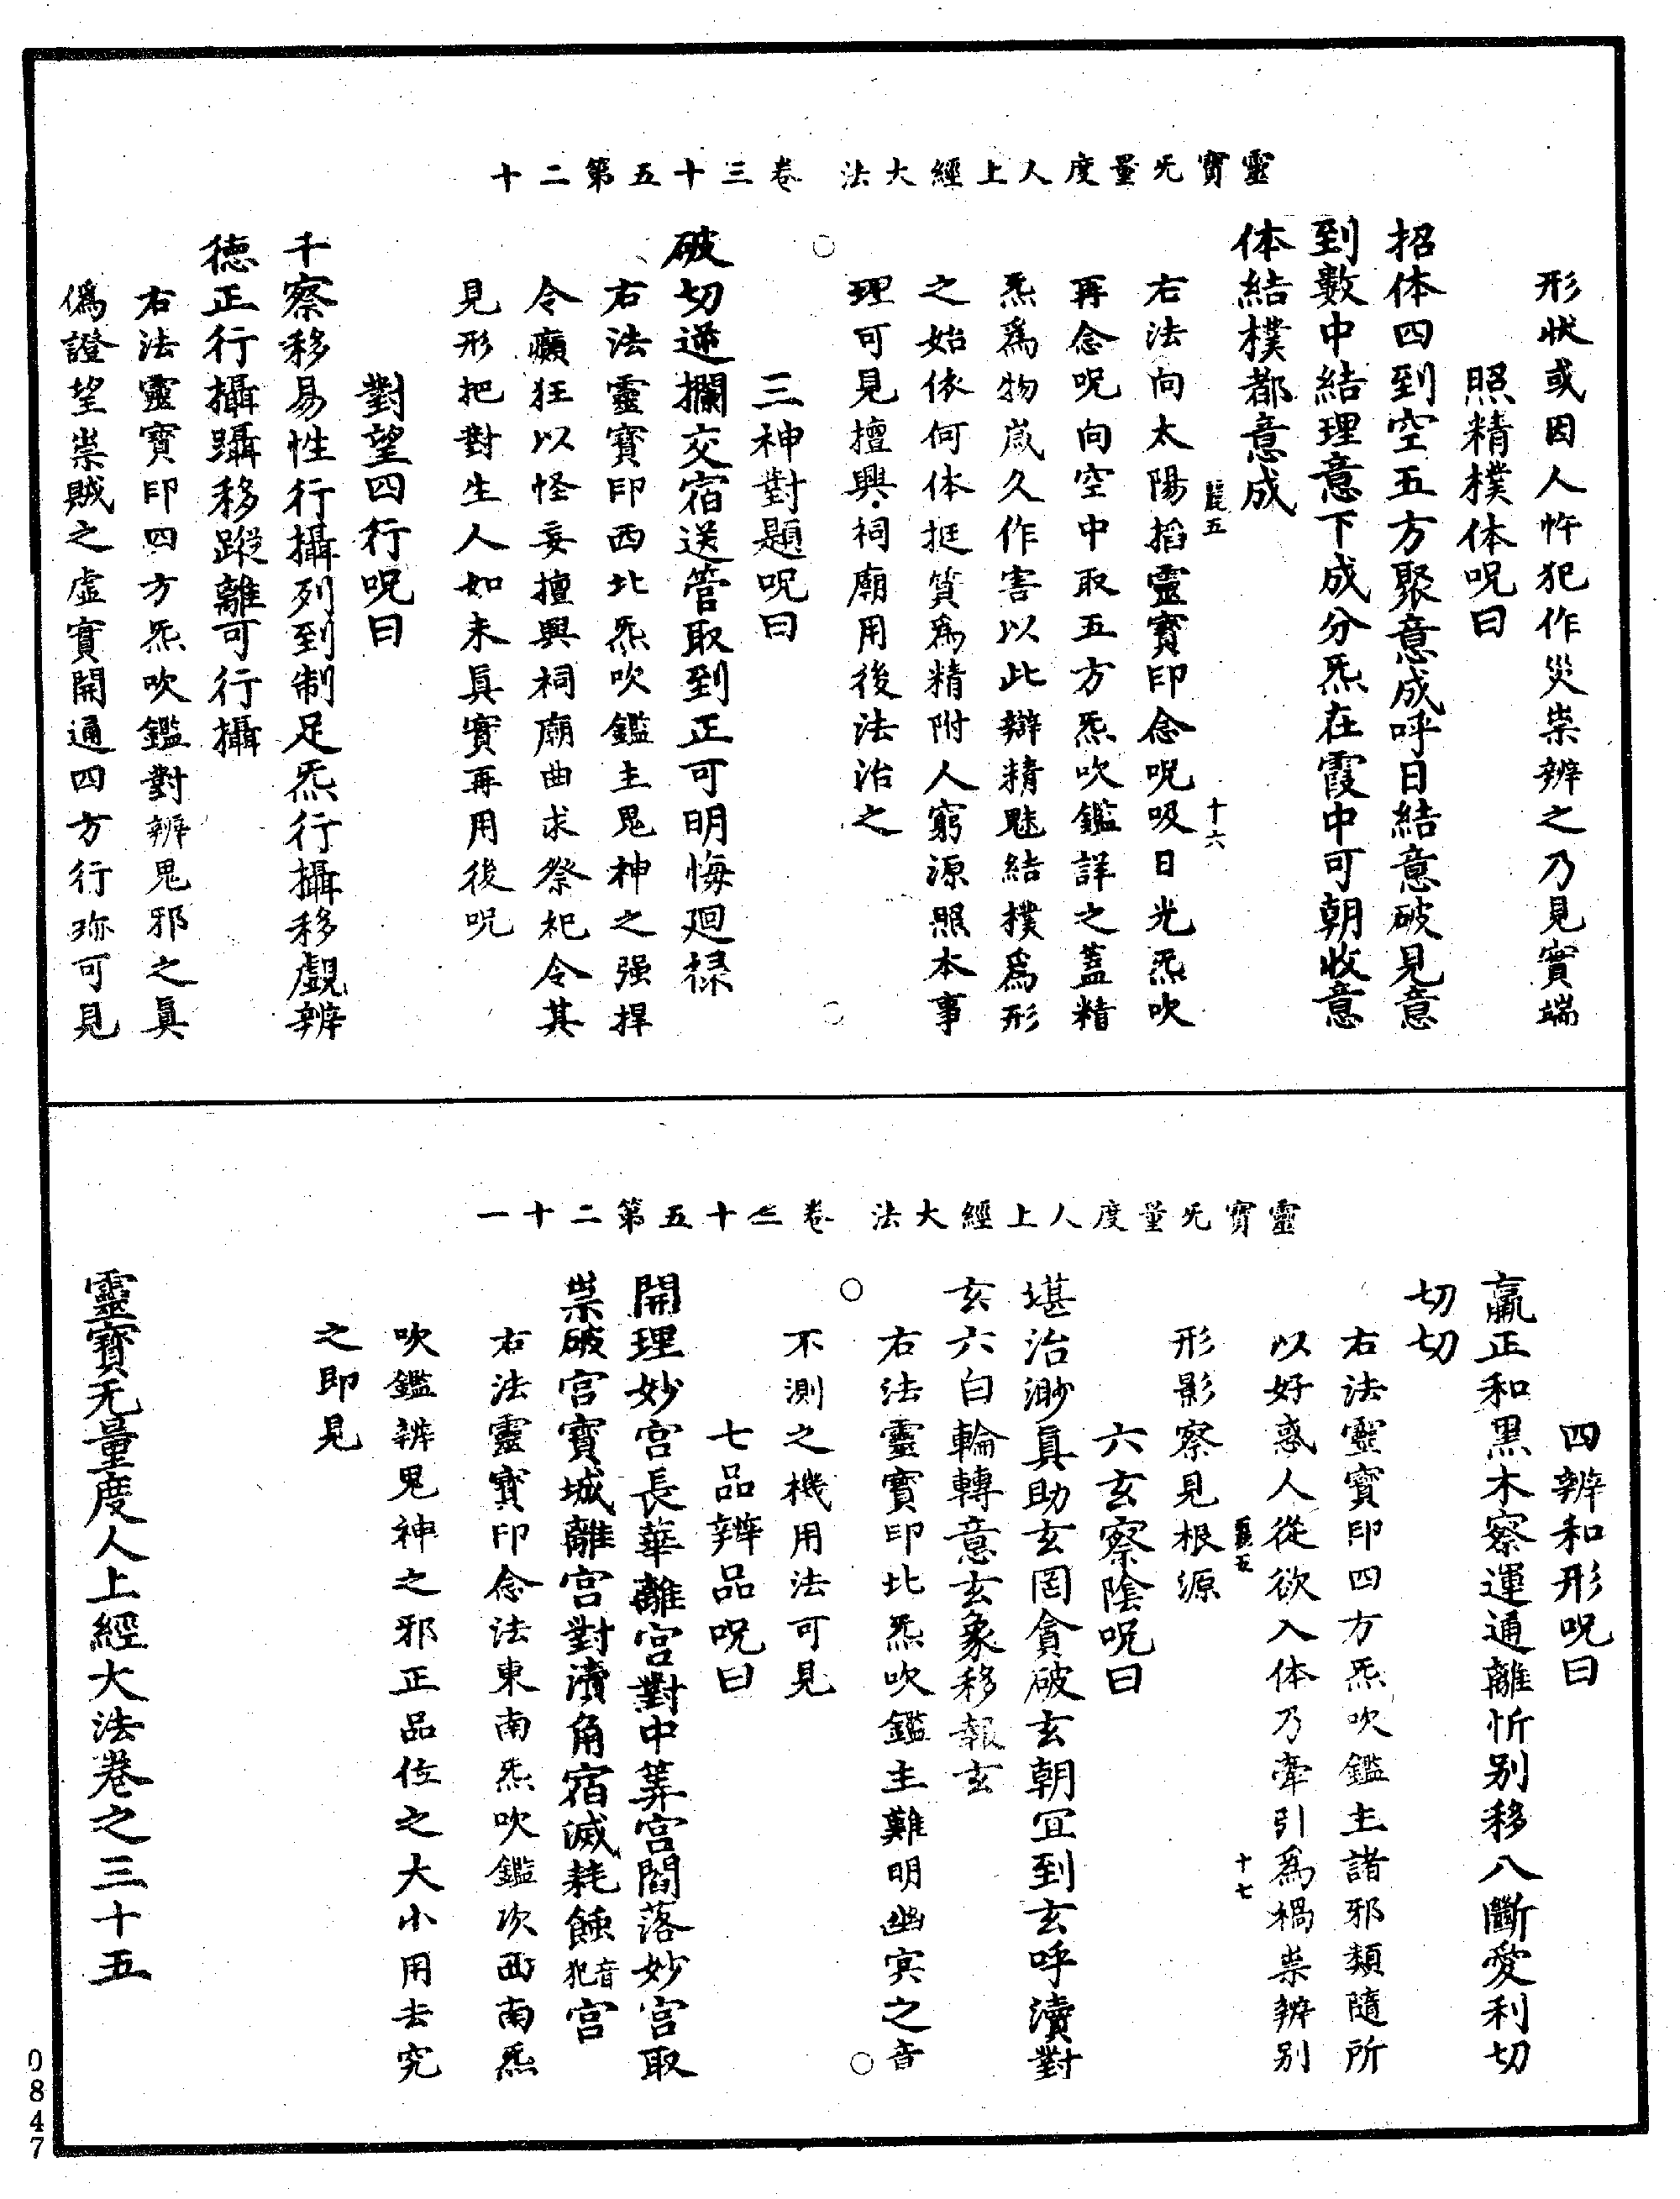 靈寶无量度人上經大法　卷三十五第二十
形狀或因人忤犯作災祟辨之乃見實端
照精樸体呪曰
招体四到空五方聚意成呼日結意破見意
到數中結理意下成分炁在霞中可朝收意
体結樸都意成
五
十六
右法向太陽掐靈寶印念呪吸日光炁吹
再念呪向空中取五方炁吹鑑詳之蓋精
炁爲物歲久作害以此辯精魅結樸爲形
之始依何体挺質爲精附人窮源照本事
理可見擅興祠廟用後法治之
三神對題呪曰
破切逆攔交宿送管取到正可明悔廻祿
右法靈寶印西北炁吹鑑主鬼神之强捍
令癲狂以怪妄擅興祠廟曲求祭祀令其
見形把對生人如未眞實再用後呪
對望四行呪曰
千察移易性行攝列到制足炁行攝移覷辨
德正行攝躡移蹤離可行攝
右法靈寶印四方炁吹鑑對辨鬼邪之眞
僞證望祟賊之虛實開通四方行珎可見
靈寶无量度人上經大法　卷三十五第二十一
四辨和形呪曰
贏正和黒木察運通離忻别移八斷愛利切
切切
右法靈寶印四方炁吹鑑主諸邪類隨所
以好惑人從欲入体乃牽引爲禍祟辨别
五
十七
形影察見根源
六玄察陰呪曰
堪治渺眞助玄罔貪破玄朝冝到玄呼瀆對
玄六白輪轉意玄象移報玄
右法靈寶印北炁吹鑑主難明幽㝠之音
不測之機用法可見
七品辨品呪曰
開理妙宫長華離宫對中筭宫閻落妙宫取
祟破宫寶城離宫對瀆角宿滅耗蝕音犯宫
右法靈寶印念法東南炁吹鑑次西南炁
吹鑑辨鬼神之邪正品位之大小用去究
之即見
靈寶无量度人上經大法卷之三十五
0847